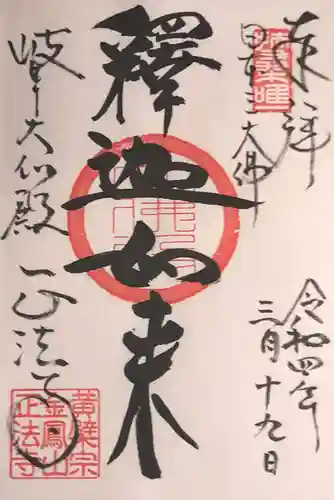 奉拝
日本三大佛
令和四年
三月十九日
釋迦如来
岐阜大仏殿 正法寺
黄檗宗
金鳳山
正法寺